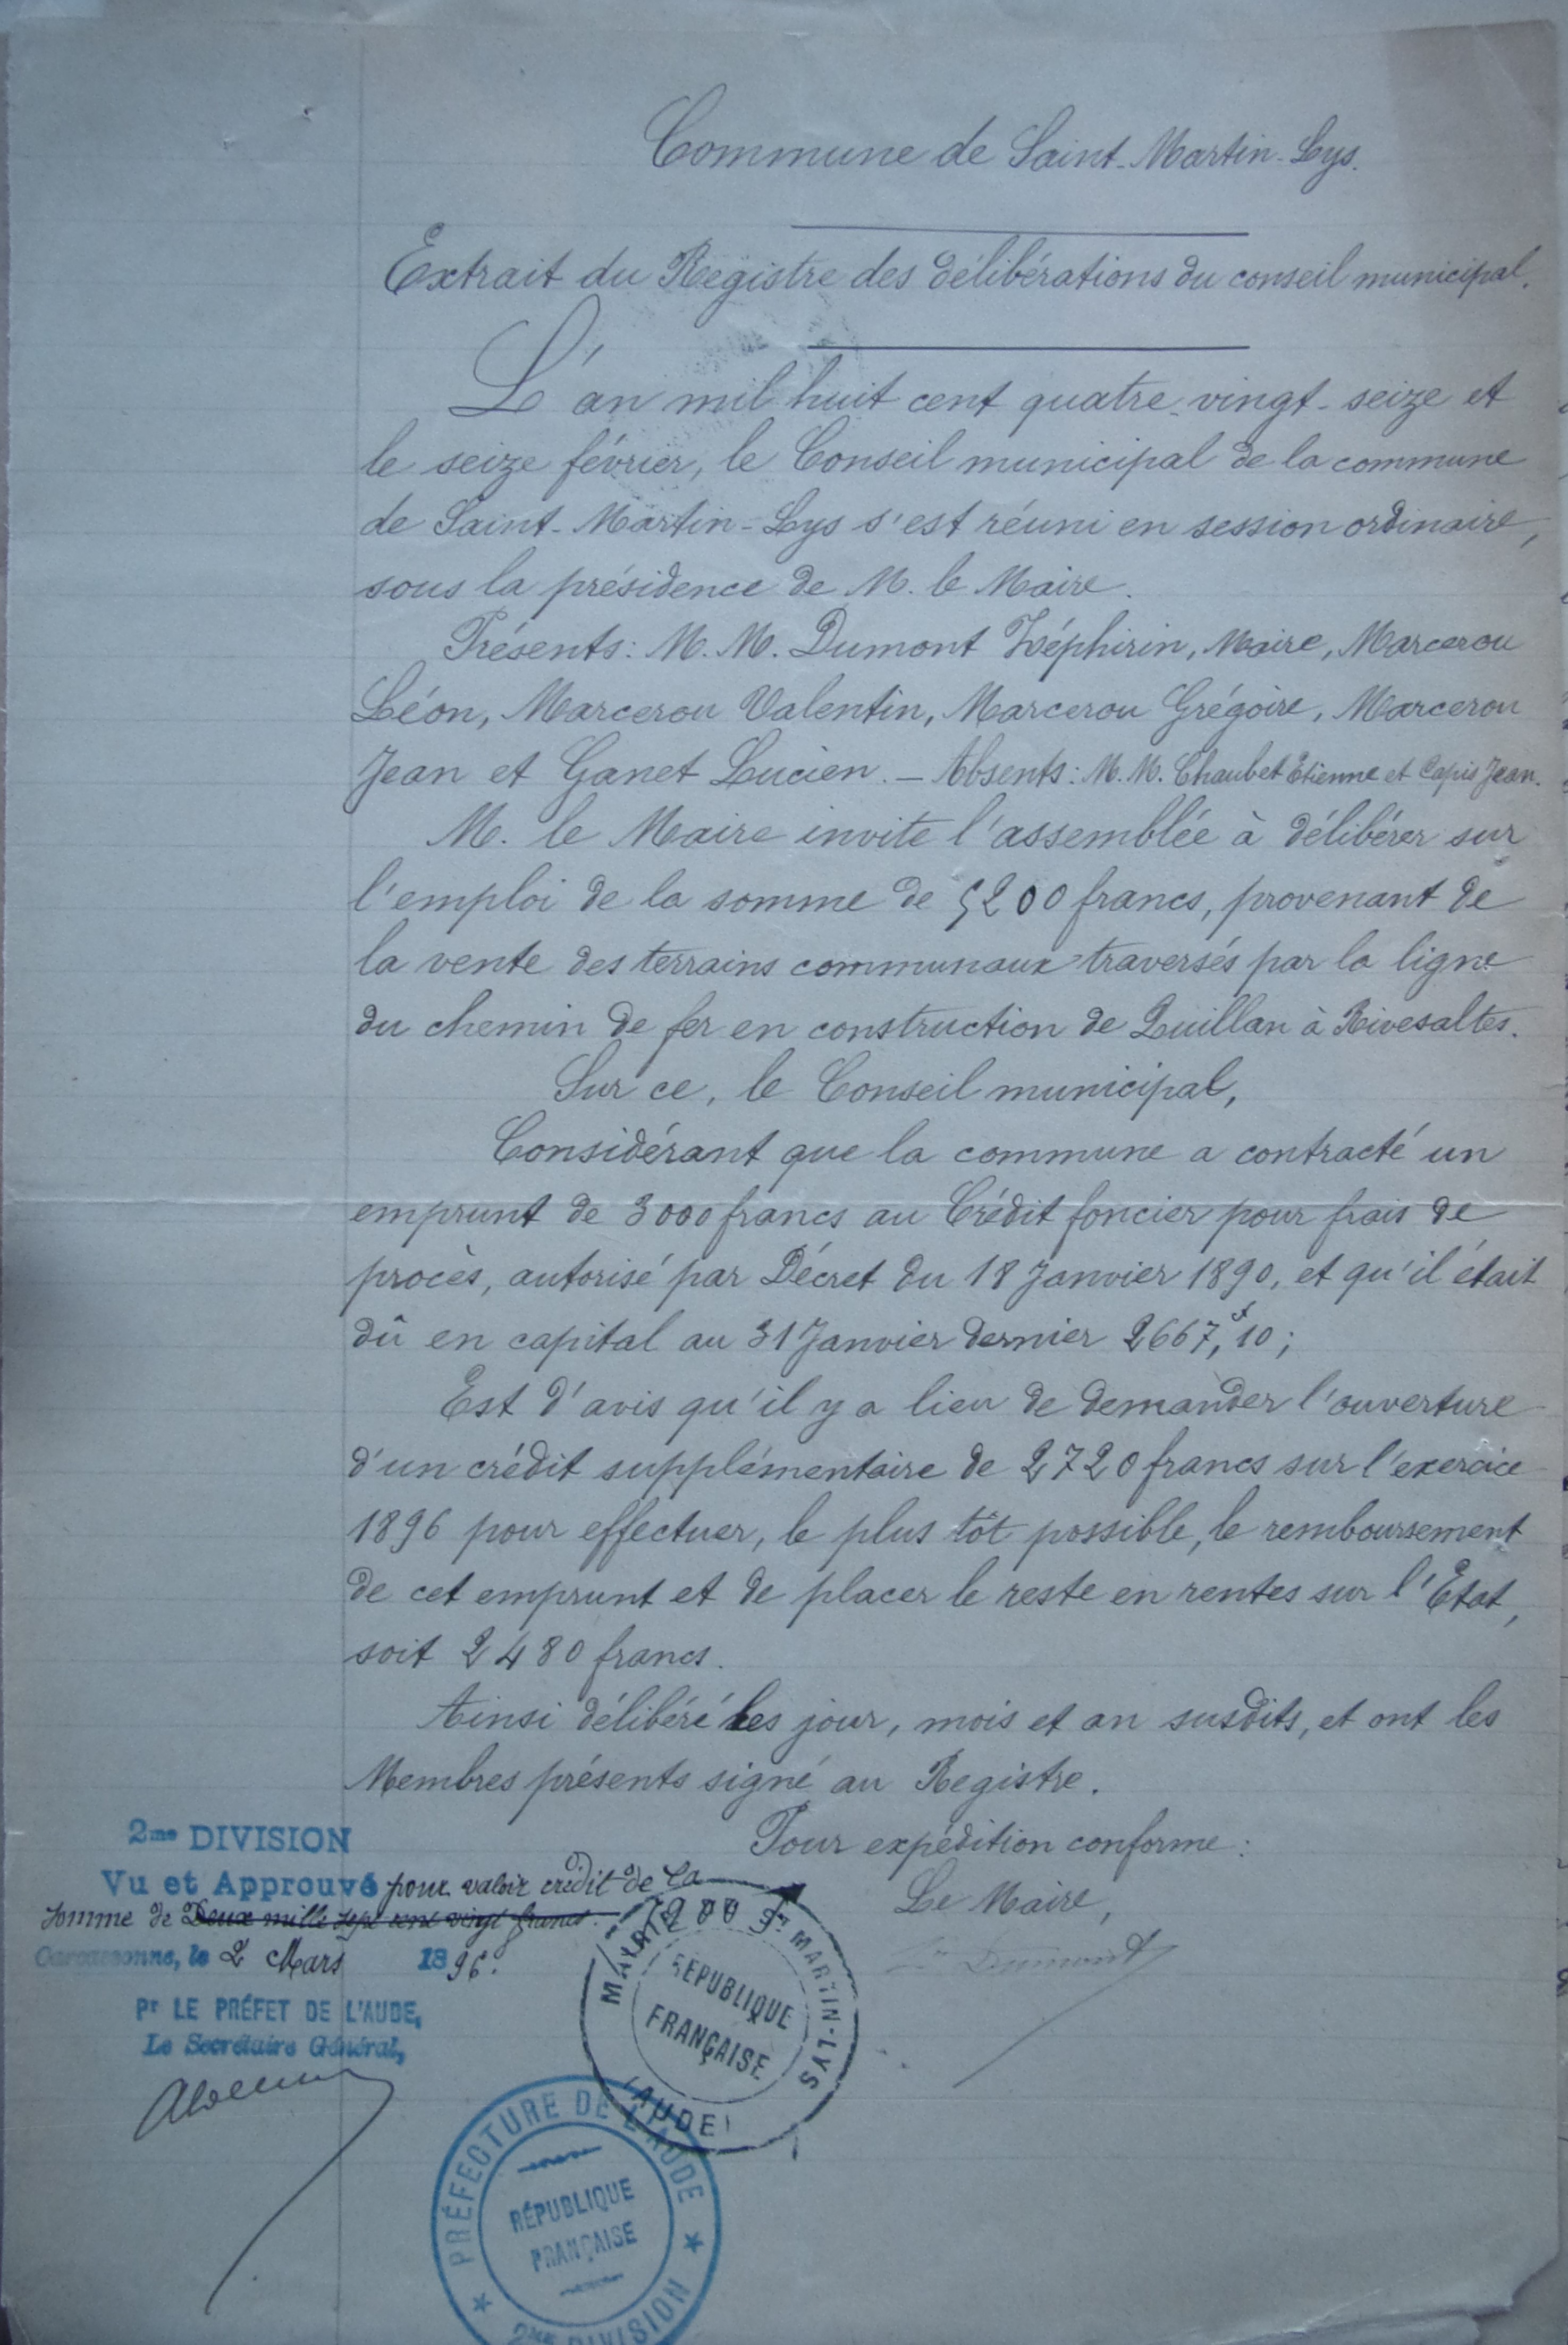 Commune de Saint-Martin-Lys.
Extrait du Registre des délibérations du conseil municipal.
L'an mil huit cent quatre-vingt-seize et
le seize février, le Conseil municipal de la commune
de Saint-Martin-Lys s'est réuni en session ordinaire,
sous la présidence de M. le Maire.
Présents: M. M. Dumont Zéphirin, Maire, Marcerou
Léon, Marcerou Valentin, Marcerou Grégoire, Marcerou
Jean et Ganet Lucien. — Absents: M. M. Chaubet Etienne et Capis Jean.
M. le Maire invite l'assemblée à délibérer sur
l'emploi de la somme de 5200 francs, provenant de
la vente des terrains communaux traversés par la ligne
du chemin de fer en construction de Quillan à Rivesaltes.
Sur ce, le Conseil municipal,
Considérant que la commune a contracté un
emprunt de 3000 francs au Crédit foncier pour frais de
procès, autorisé par Décret du 18 Janvier 1890, et qu'il était
dû en capital au 31 Janvier dernier 2667,f10;
Est d'avis qu'il y a lieu de demander l'ouverture
d'un crédit supplémentaire de 2720 francs sur l'exercice
1896 pour effectuer, le plus tôt possible, le remboursement
de cet emprunt et de placer le reste en rentes sur l'Etat,
soit 2480 francs.
Ainsi délibéré les jour, mois et an susdits, et ont les
Membres présents signé au Registre.
Pour expédition conforme:
Le Maire,
Dumont
2me DIVISION
Vu et Approuvé pour valoir crédit de la
somme de Deux mille sept cent vingt francs.
Carcassonne, le 2 Mars 1896.
Pr LE PRÉFET DE L'AUDE,
Le Secrétaire Général,
MAIRIE DE ST MARTIN-LYS
RÉPUBLIQUE
FRANÇAISE
(AUDE)
PRÉFECTURE DE L'AUDE
RÉPUBLIQUE
FRANÇAISE
2me DIVISION